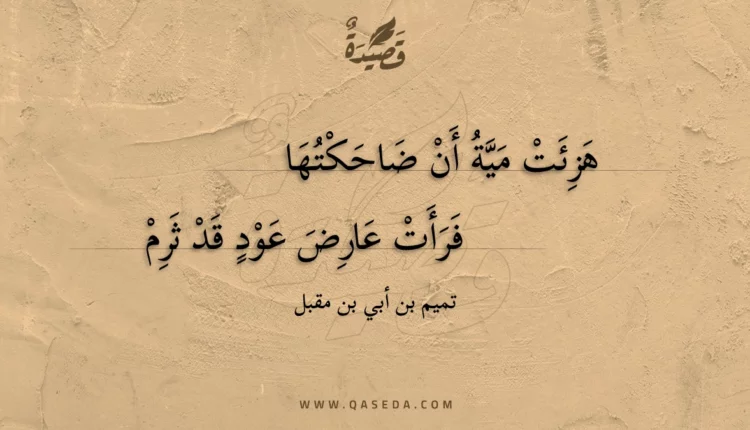 قَصِيدَةٌ
هَزِئَتْ مَيَّةُ أَنْ ضَاحَكْتُهَا
فَرَأَتْ عَارِضَ عَوْدٍ قَدْ ثَرِمْ
تميم بن أبي بن مقبل
WWW.QASEDA.COM